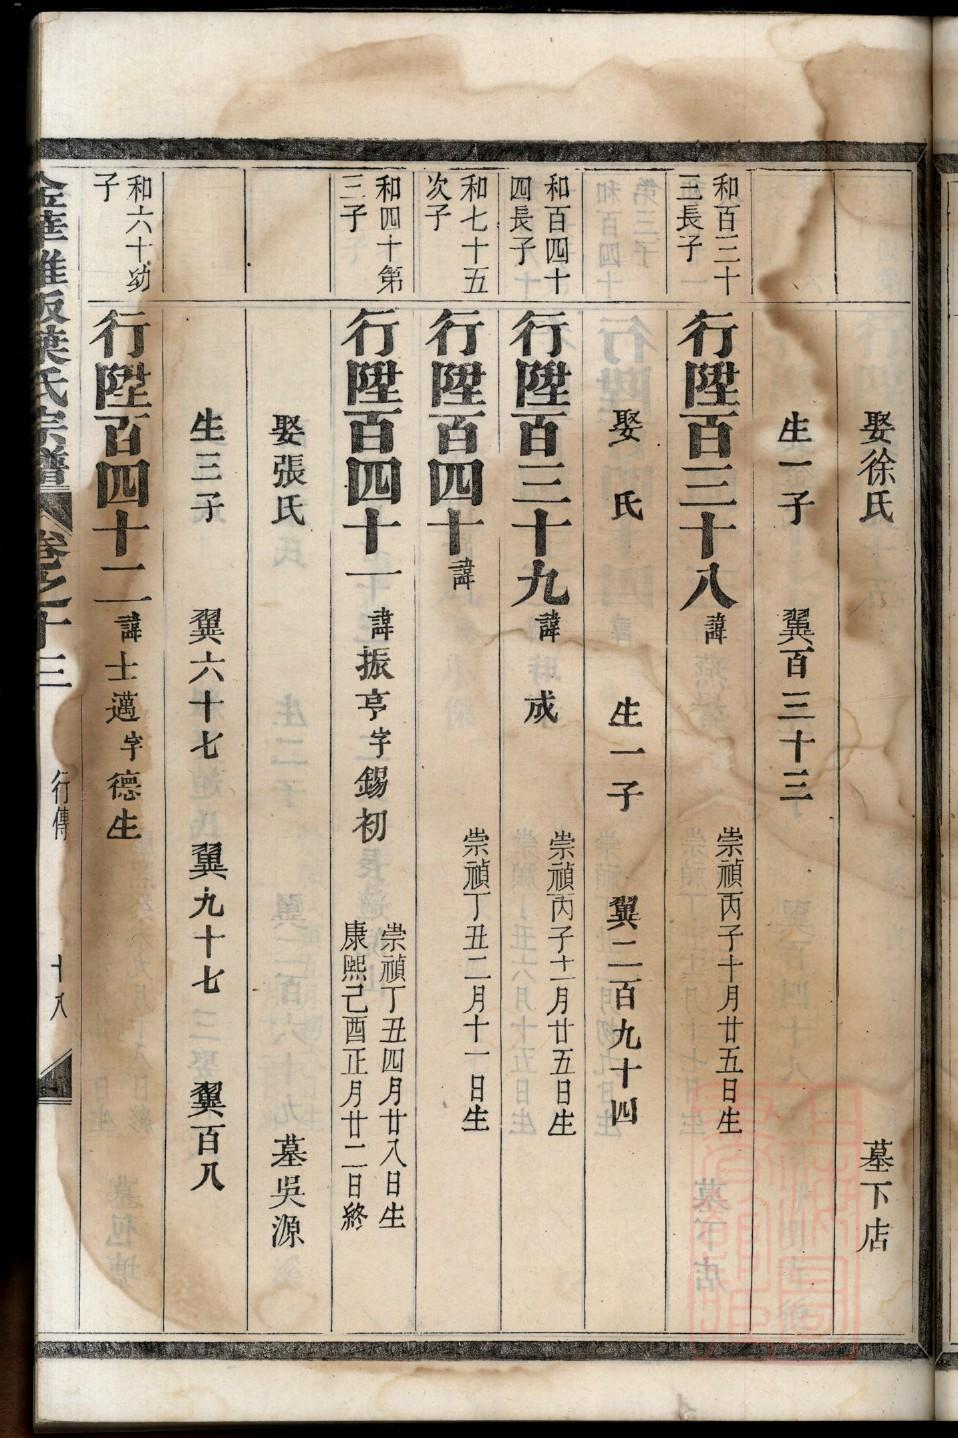 娶徐氏 墓下店
生一子 翼百三十三
和百三十
三長子
行陞百三十八 諱
崇禎丙子十月廿五日生
娶 氏 生一子 翼二百九十四
和百四十
四長子
行陞百三十九 諱成
崇禎丙子十二月廿五日生
和七十五
次子
行陞百四十 諱
崇禎丁丑二月十一日生
和四十第
三子
行陞百四十一 諱振亨字錫初
崇禎丁丑四月廿八日生
康熙己酉正月廿二日終
娶張氏 墓吳源
生三子 翼六十七 翼九十七 翼百八
和六十幼
子
行陞百四十二 諱士邁字德生
葉氏宗譜 卷之十三 行傳 十八